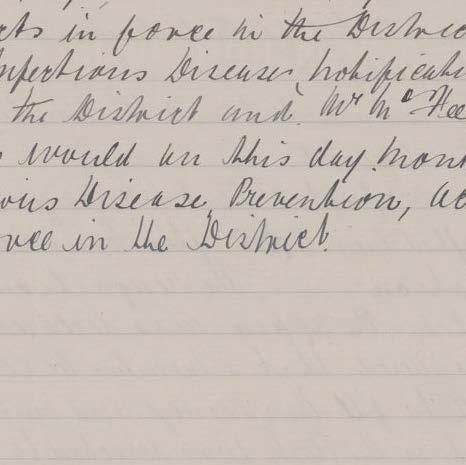 cts in force in the Distric
nfectious Disease, Notificati
the District and Mr McFee
would on this day Mont
ious Disease, Prevention, Ac
orce in the District.